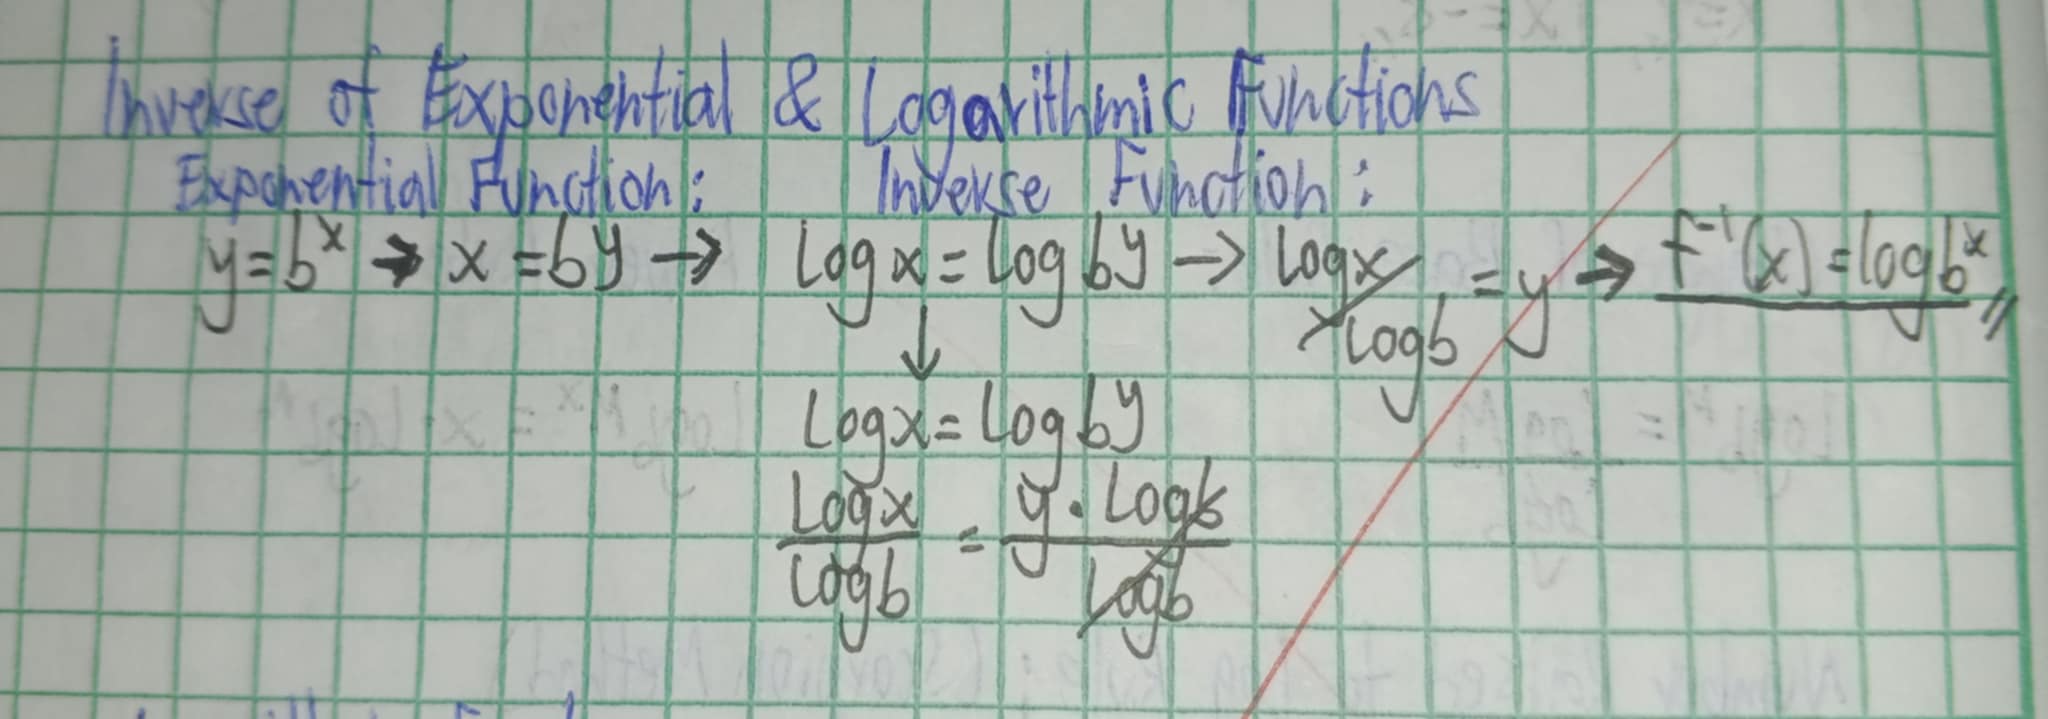 Inverse of Exponential & Logarithmic Functions
Exponential Function: Inverse Function:
y=b^x → x=b^y → Log x = Log b^y → Log x / Log b = y → f^-1(x) = log b^x
↓
Log x = Log b^y
Log x / Log b = y · Log b / Log b